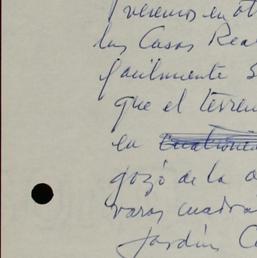 veremos en ot
las Casas Rea
fácilmente s
que el terren
en cuatrocien
gozó de la o
varas cuadra
Jardín C